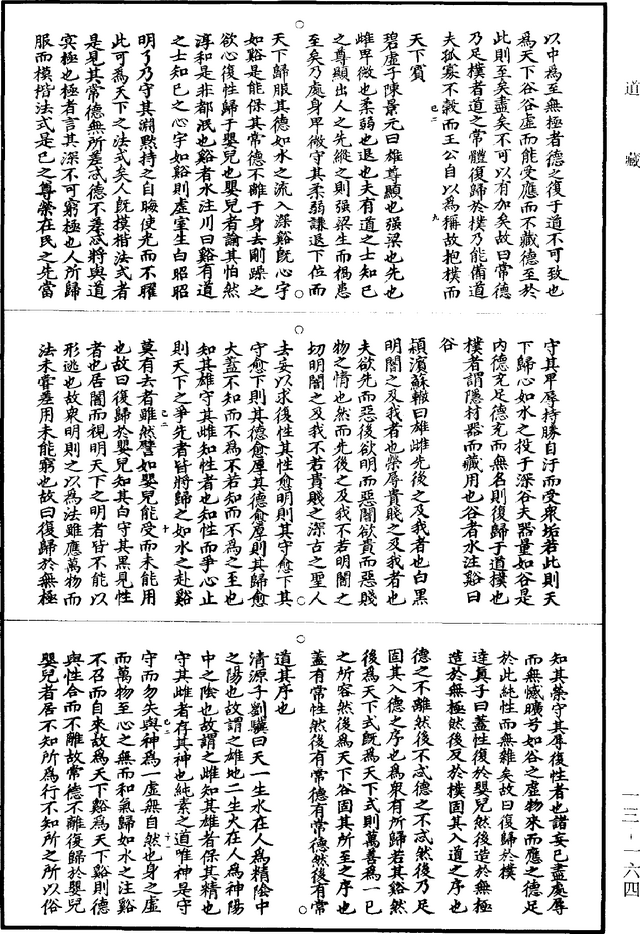 道藏
以中為至無極者德之復于道不可致也
為天下谷谷虛而能受應而不藏德至於
此則至矣盡矣不可以有加矣故曰常德
乃足樸者道之常體復歸於樸乃能備道
夫孤寡不穀而王公自以為稱故抱樸而
天下賓
碧虛子陳景元曰雄尊顯也强梁也先也
雌卑微也柔弱也退也夫有道之士知已
之尊顯出人之先縱之則强梁生而禍患
至矣乃處身卑微守其柔弱謙退下位而
天下歸服其德如水之流入深谿既心宇
如谿是能保其常德不離于身去剛躁之
欲心復性歸于嬰兒也嬰兒者諭其怕然
淳和是非都泯也谿者水注川曰谿有道
之士知已之心宇如谿則虛室生白昭昭
明了乃守其淵默持之自晦使光而不耀
此可為天下之法式矣人既摸楷法式者
是見其常德無所差忒德不差忒將與道
㝠極也極者言其深不可窮極也人所歸
服而模楷法式是已之尊榮在民之先當
守其卑辱持勝自汙而受衆垢若此則天
下歸心如水之投于深谷夫器量如谷是
内德充足德充而無名則復歸于道樸也
樸者謂隱材器而藏用也谷者水注谿曰
谷
潁濱蘇轍曰雄雌先後之及我者也白黑
明闇之及我者也榮辱貴賤之及我者也
夫欲先而惡後欲明而惡闇欲貴而惡賤
物之情也然而先後之及我不若明闇之
切明闇之及我不若貴賤之深古之聖人
去妄以求復性其性愈明則其守愈下其
守愈下則其德愈厚其德愈厚則其歸愈
大蓋不知而不為不若知而不為之至也
知其雄守其雌知性者也知性而爭心止
則天下之爭先者皆將歸之如水之赴谿
莫有去者雖然譬如嬰兒能受而未能用
也故曰復歸於嬰兒知其白守其黑見性
者也居闇而視明天下之明者皆不能以
形逃也故衆明則之以為法雖應萬物而
法未嘗差用未能窮也故曰復歸於無極
知其榮守其辱復性者也諸妄已盡處辱
而無憾曠兮如谷之虛物來而應之德足
於此純性而無雜矣故曰復歸於樸
達真子曰蓋性復於嬰兒然後造於無極
造於無極然後及於樸固其入道之序也
德之不離然後不忒德之不忒然後乃足
固其入德之序也為衆有所歸若其谿然
後為天下式既為天下式則萬善為一已
之所容然後為天下谷固其所至之序也
蓋有常性然後有常德有常德然後有常
道其序也
清源子劉驥曰天一生水在人為精陰中
之陽也故謂之雄地二生火在人為神陽
中之陰也故謂之雌知其雄者保其精也
守其雌者存其神也純素之道唯神是守
守而勿失與神為一虛無自然也身之虛
而萬物至心之無而和氣歸如水之注谿
不召而自來故為天下谿為天下谿則德
與性合而不離故常德不離復歸於嬰兒
嬰兒者居不知所為行不知所之所以俗
一三-一六四